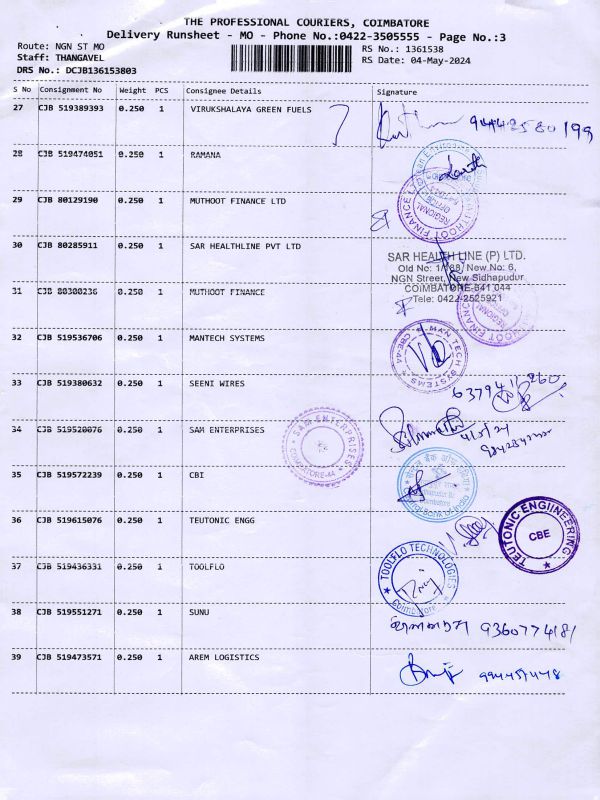 THE PROFESSIONAL COURIERS, COIMBATORE
Delivery Runsheet - MO - Phone No.:0422-3505555 - Page No.:3
Route: NGN ST MO
RS No.: 1361538
Staff: THANGAVEL
RS Date: 04-May-2024
DRS No.: DCJB136153803
S No Consignment No Weight PCS Consignee Details Signature
27 CJB 519389393 0.250 1 VIRUKSHALAYA GREEN FUELS
28 CJB 519474051 0.250 1 RAMANA
29 CJB 80129190 0.250 1 MUTHOOT FINANCE LTD
REGIONAL OFFICE
30 CJB 80285911 0.250 1 SAR HEALTHLINE PVT LTD
SAR HEALTH LINE (P) LTD.
Old No: 1/188, New No: 6,
NGN Street, New Sidhapudur
COIMBATORE-641 044
Tele: 0422-2525921
31 CJB 80300236 0.250 1 MUTHOOT FINANCE
32 CJB 519536706 0.250 1 MANTECH SYSTEMS
MAN TECH SYSTEMS
CBE-44
33 CJB 519380632 0.250 1 SEENI WIRES
34 CJB 519520076 0.250 1 SAM ENTERPRISES
SAM ENTERPRISES
COIMBATORE-44
4/5/24
35 CJB 519572239 0.250 1 CBI
Central Bank of India
36 CJB 519615076 0.250 1 TEUTONIC ENGG
TEUTONIC ENGIINEERING
CBE
37 CJB 519436331 0.250 1 TOOLFLO
TOOLFLO TECHNOLOGIES
Coimbatore
38 CJB 519551271 0.250 1 SUNU
9360774181
39 CJB 519473571 0.250 1 AREM LOGISTICS